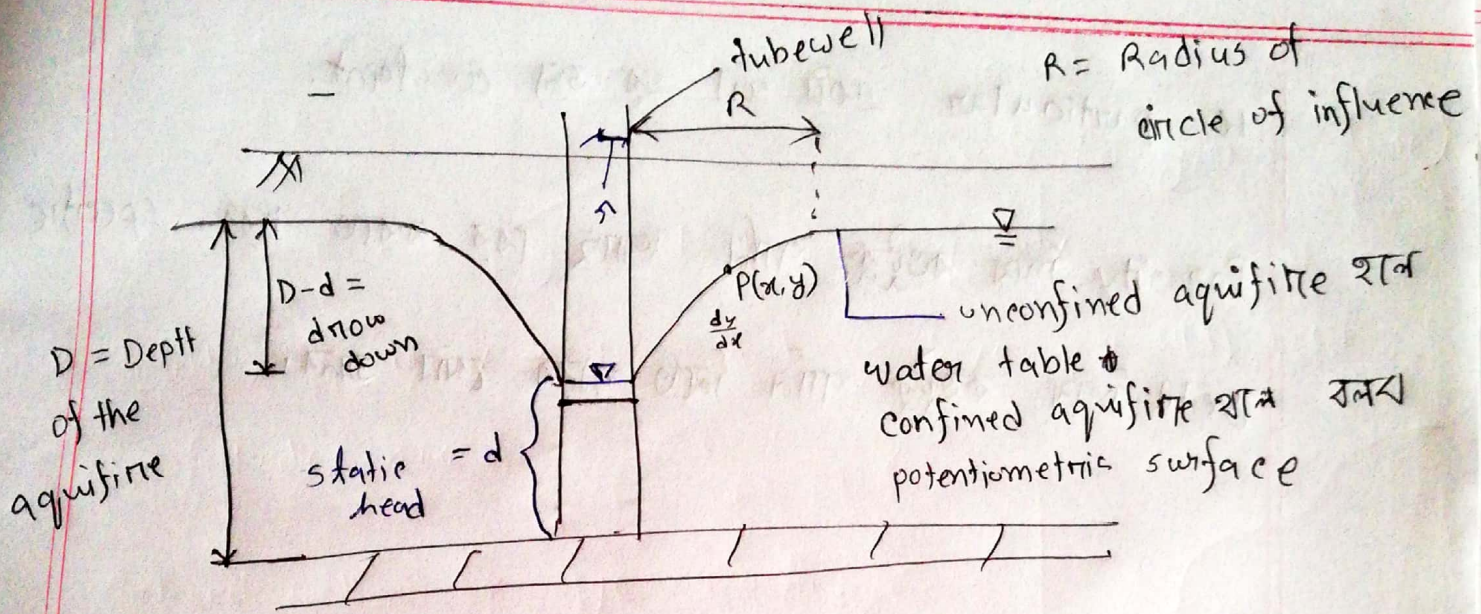 tubewell
R
R = Radius of
circle of influence
r
D-d =
drow
down
P(x, y)
dy/dx
D = Deptt
of the
aquifire
static
head
= d
unconfined aquifire হলে
water table
confined aquifire হলে বলব
potentiometric surface